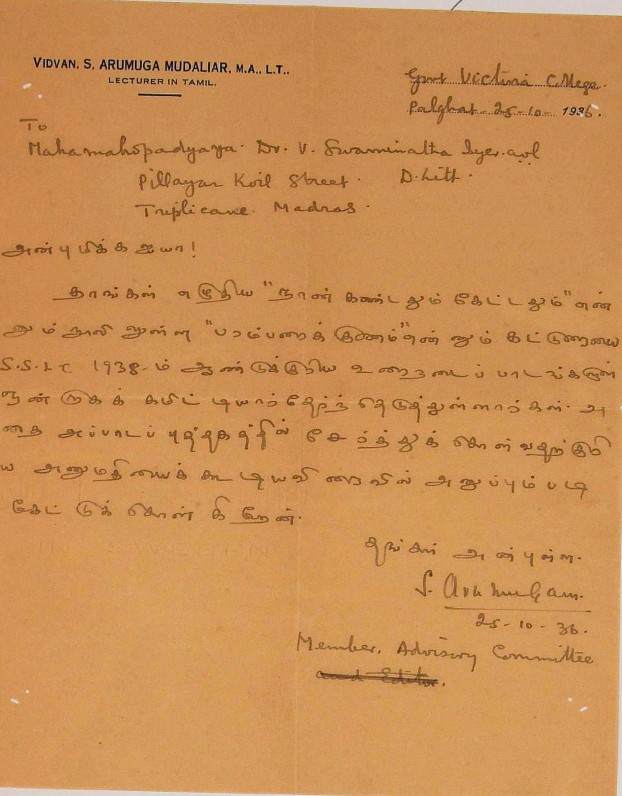 VIDVAN. S. ARUMUGA MUDALIAR, M.A., L.T.,
LECTURER IN TAMIL.
Govt Victoria College.
Palghat 25-10-1936.
To
Mahamahopadyaya. Dr. V. Swaminatha Iyer. avl
Pillayar Koil Street. D.Litt.
Triplicane. Madras.
அன்புமிக்க ஐயா!
தாங்கள் எழுதிய "நான் கண்டதும் கேட்டதும்" என்
னும் நூலிலுள்ள "பரம்பரைக் குணம்" என்னும் கட்டுரையை
S.S.L.C 1938-ம் ஆண்டுக்குரிய உரைநடைப் பாடங்களுள்
ஒன்றாகக் கமிட்டியார் தேர்ந்தெடுத்துள்ளார்கள். அ
தை அப்பாடப் புத்தகத்தில் சேர்த்துக் கொள்வதற்குரி
ய அனுமதியைக் கூடிய விரைவில் அனுப்பும்படி
கேட்டுக் கொள்கிறேன்.
தங்கள் அன்புள்ள.
S. Arumugam.
25-10-36.
Member, Advisory Committee
and Editor.